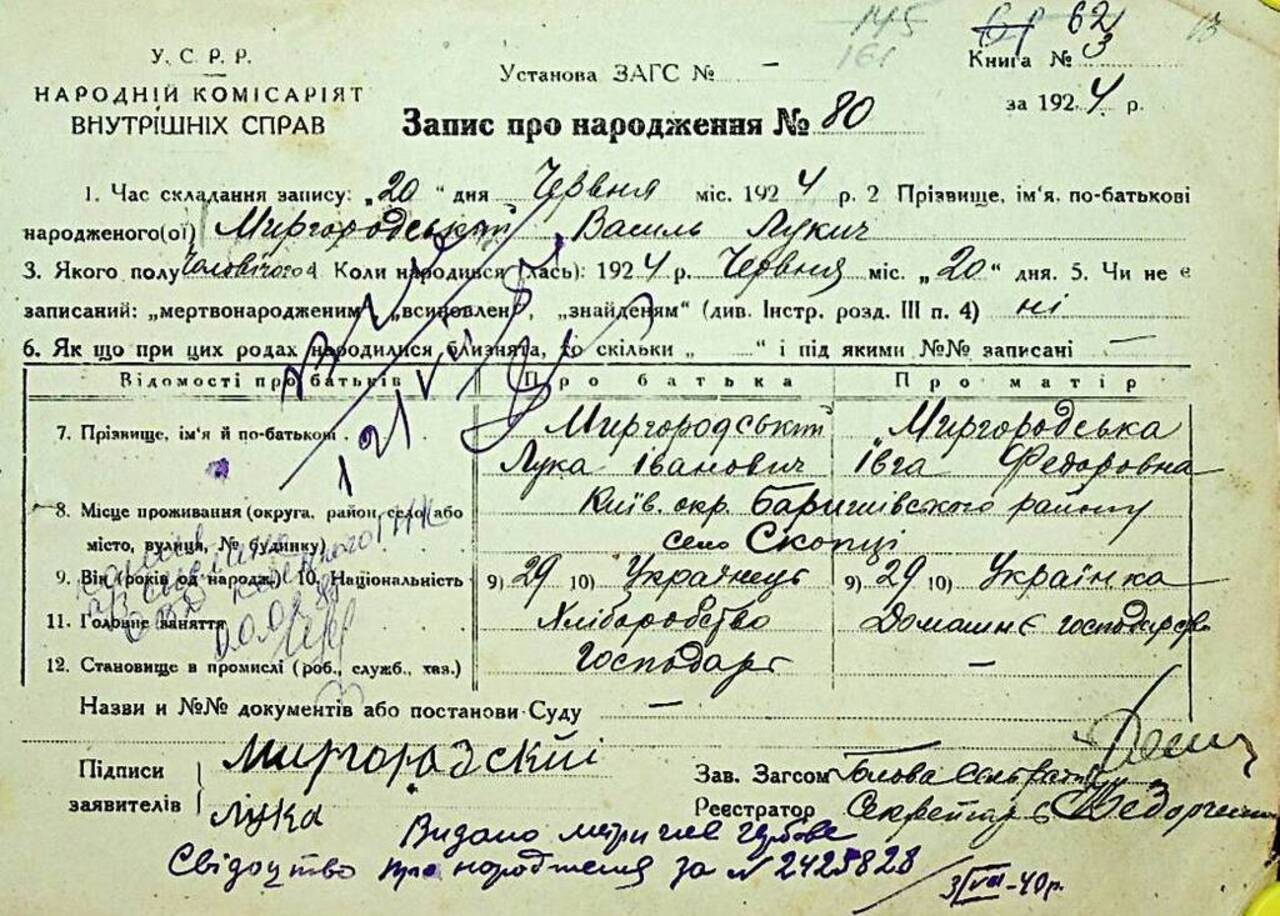 145
161
62
13
У. С. Р. Р.
НАРОДНІЙ КОМІСАРІЯТ
ВНУТРІШНІХ СПРАВ
Установа ЗАГС № –
Книга № 3
за 1924 р.
Запис про народження № 80
1. Час складання запису: „20 “ дня Червня міс. 1924 р. 2 Прізвище, ім'я, по-батькові
народженого(ої) Миргородський Василь Лукич
3. Якого полу Чоловічого 4. Коли народився (лась): 1924 р. Червня міс. „20“ дня. 5. Чи не є
записаний: „мертвонародженим“ „всиновлен“, „знайденям“ (див. Інстр. розд. III п. 4) ні
6. Як що при цих родах народилися близнята, то скільки „ “ і під якими №№ записані –
Відомості про батьків Про батька Про матір
7. Прізвище, ім'я й по-батькові Миргородський Миргородська
Лука Іванович Івга Федоровна
8. Місце проживання (округа, район, село або Київ. окр. Баришівського району
місто, вулиця, № будинку) село Скопці
9. Він (років од народж.) 10. Національність 9) 29 10) Українець 9) 29 10) Українка
11. Головне заняття Хліборобство Домашнє господарств
12. Становище в промислі (роб., служб., хаз.) Господарь –
Назви и №№ документів або постанови Суду –
Підписи заявителів Миргорадский
Лука
Зав. Загсом Голова Сельради
Реєстратор Секретарь
Видано метричне гербове
Свідоцтво про народження за № 2425828
3/VII-40р.